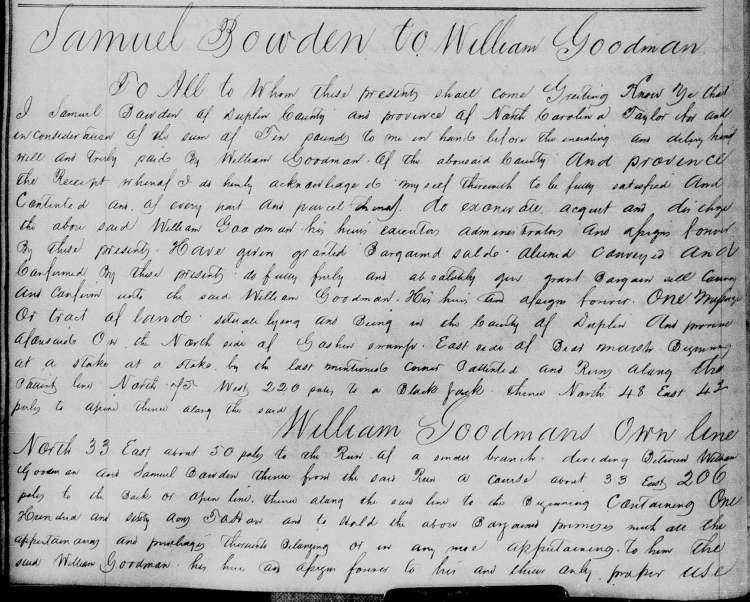 Samuel Bowden to William Goodman
To All to Whom these presents shall come Greeting Know Ye that
I Samuel Bowden of Duplin County and province of North Carolina Taylor for and
in consideration of the sum of Ten pounds to me in hand before the and
well and truly said By William Goodman Of the abovesaid County And province
the Receipt whereof I do hereby acknowledge & myself therewith to be fully satisfied And
Contented and of every part and parcel thereof do exonerate acquit and discharge
the above said William Goodman his heirs executors administrators and assigns forever
By these presents Have given granted Bargained sold conveyed And
Confirmed By these presents do fully freely and absolutely give grant Bargain sell Convey
And Confirm unto the said William Goodman His heirs and assigns forever One
Or tract of land situate lying and Being in the County of Duplin And province
aforesaid On the North side of Goshen swamp East side of Bear marsh Beginning
at a stake at a stake by the last mentioned corner Pattented and Runs along the
Patent line North 75 West 220 poles to a Black Jack thence North 48 East 42
poles to a pine thence along the said
William Goodmans Own line
North 33 East about 50 poles to the Run of a small branch dividing Between William
Goodman and Samuel Bowden thence from the said Run a course about 33 East 206
poles to the Back or open line thence along the said line to the Beginning Containing One
Hundred and sixty acres To Have and to Hold the above Bargained premises with all the
appurtenances and privileges thereunto Belonging or in any wise appertaining to him the
said William Goodman his heirs and assigns forever to his and their only proper use